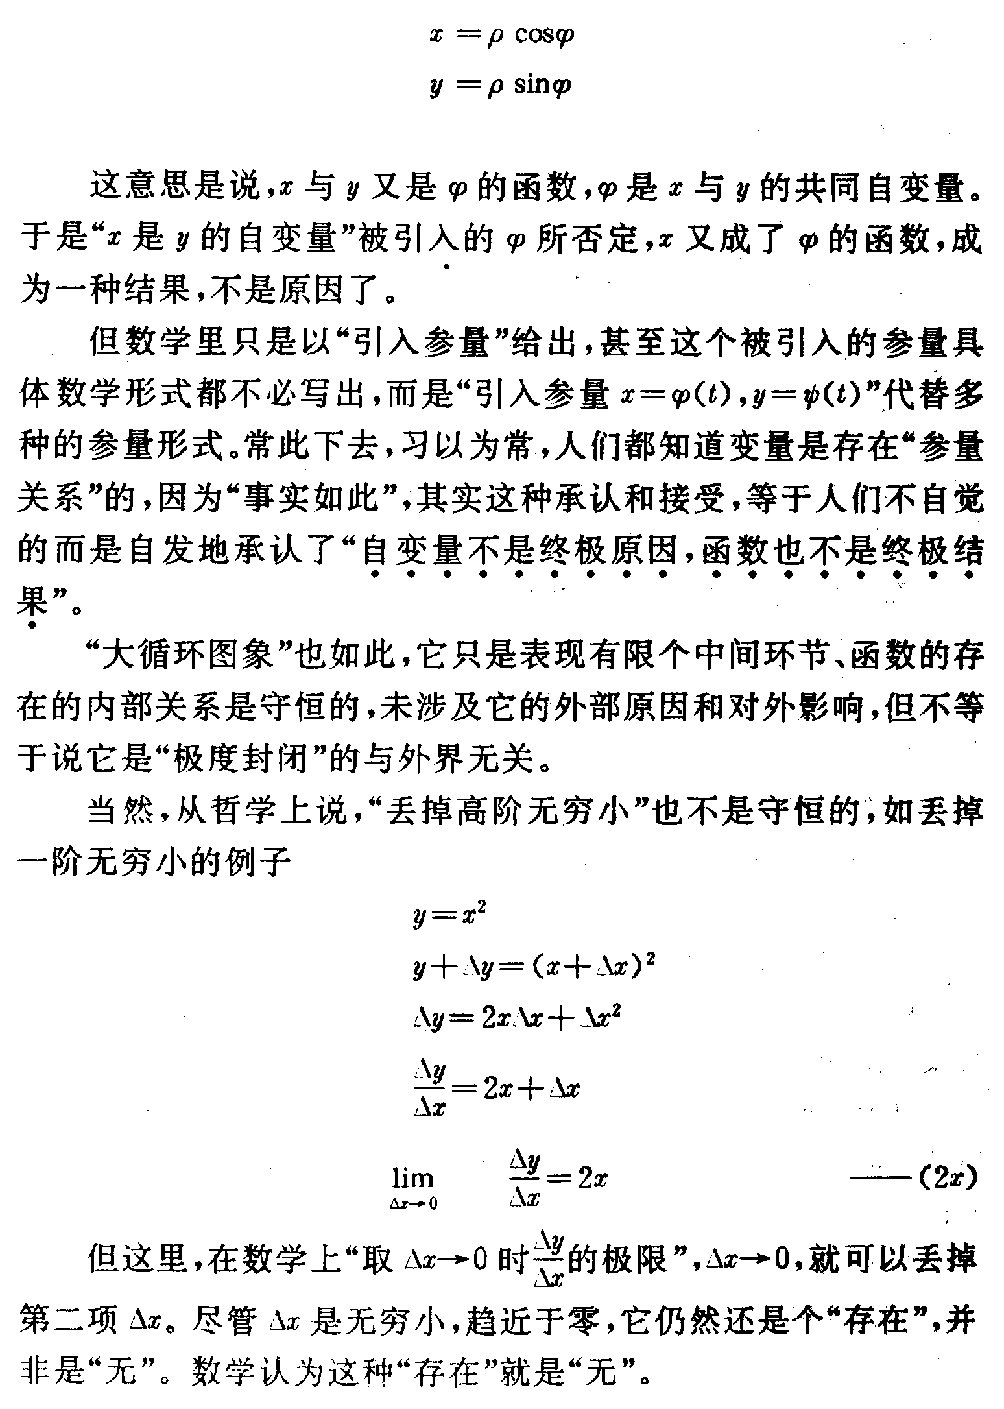 x = ρ cosφ
y = ρ sinφ
这意思是说,x 与 y 又是 φ 的函数,φ 是 x 与 y 的共同自变量。
于是“x 是 y 的自变量”被引入的 φ 所否定,x 又成了 φ 的函数,成
为一种结果,不是原因了。
但数学里只是以“引入参量”给出,甚至这个被引入的参量具
体数学形式都不必写出,而是“引入参量 x=φ(t),y=ψ(t)”代替多
种的参量形式。常此下去,习以为常,人们都知道变量是存在“参量
关系”的,因为“事实如此”,其实这种承认和接受,等于人们不自觉
的而是自发地承认了“自变量不是终极原因,函数也不是终极结
果”。
“大循环图象”也如此,它只是表现有限个中间环节、函数的存
在的内部关系是守恒的,未涉及它的外部原因和对外影响,但不等
于说它是“极度封闭”的与外界无关。
当然,从哲学上说,“丢掉高阶无穷小”也不是守恒的,如丢掉
一阶无穷小的例子
y=x²
y+Δy=(x+Δx)²
Δy=2xΔx+Δx²
Δy/Δx=2x+Δx
lim Δx→0 Δy/Δx=2x ——(2x)
但这里,在数学上“取 Δx→0 时Δy/Δx的极限”,Δx→0,就可以丢掉
第二项 Δx。尽管 Δx 是无穷小,趋近于零,它仍然还是个“存在”,并
非是“无”。数学认为这种“存在”就是“无”。